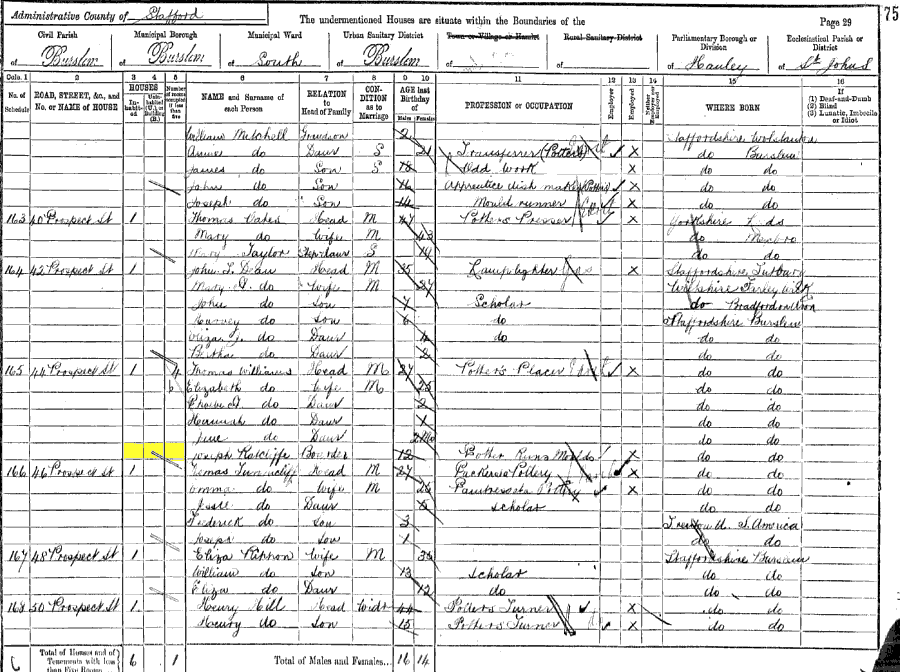 Administrative County of Stafford
The undermentioned Houses are situate within the Boundaries of the
Page 29
75
Civil Parish
of Burslem
Municipal Borough
of Burslem
Municipal Ward
of South
Urban Sanitary District
of Burslem
Town or Village or Hamlet
of
Rural Sanitary District
of
Parliamentary Borough or Division
of Hanley
Ecclesiastical Parish or District
of St Johns
Cols. 1 2 3 4 5 6 7 8 9 10 11 12 13 14 15 16
No. of Schedule
ROAD, STREET, &c., and No. or NAME of HOUSE
HOUSES
Inhabited
Uninhabited (U.) or Building (B.)
Number of rooms occupied if less than five
NAME and Surname of each Person
RELATION to Head of Family
CONDITION as to Marriage
AGE last Birthday of
Males Females
PROFESSION or OCCUPATION
Employer
Employed
Neither Employer nor Employed
WHERE BORN
If
(1) Deaf-and-Dumb
(2) Blind
(3) Lunatic, Imbecile or Idiot
William Mitchell Grandson 2 Staffordshire
Annie do Daur S 21 Transferrer (Potter) X do Burslem
James do Son S 18 Odd Work X do do
John do Son 16 Apprentice dish maker X do do
Joseph do Son 14 Mould runner X do do
163 40 Prospect St 1 Thomas Oakes Head M 47 Potters Presser X Yorkshire Leeds
Mary do Wife M 43 do Mexbro
Mary Taylor Stepdaur S 19 do do
164 42 Prospect St 1 John T. Dean Head M 35 Lamplighter Gas X Staffordshire Tutbury
Mary do Wife M 27 Wiltshire Farley Wick
John do Son 7 Scholar do Bradford on Avon
Harvey do Son 6 do Staffordshire Burslem
Eliza J. do Daur 4 do do do
Bertha do Daur 2 do do
165 44 Prospect St 1 4 Thomas Williams Head M 27 Potter's Placer X do do
6 Elizabeth do Wife M 25 do do
Phoebe do Daur 2 do do
Hannah do Daur 1 do do
Jane do Daur do do
Joseph Ratcliffe Boarder 12 Potter Runs Moulds X do do
166 46 Prospect St 1 Thomas Tunnicliff Head M 27 Pottery X do do
Emma do Wife M 26 Paintress Pottery X do do
Jessie do Daur scholar do do
Frederick do Son 3 Trenton U. S. America
Joseph do Son 1 do do
167 48 Prospect St 1 Eliza Wife M Staffordshire Burslem
William do Son 13 scholar do do
Eliza do Daur 12 do do do
168 50 Prospect St 1 Henry Hill Head Widr 44 Potters Turner X do do
Henry do Son 15 Potters Turner X do do
Total of Houses and of Tenements with less than Five Rooms 6 1
Total of Males and Females... 16 14